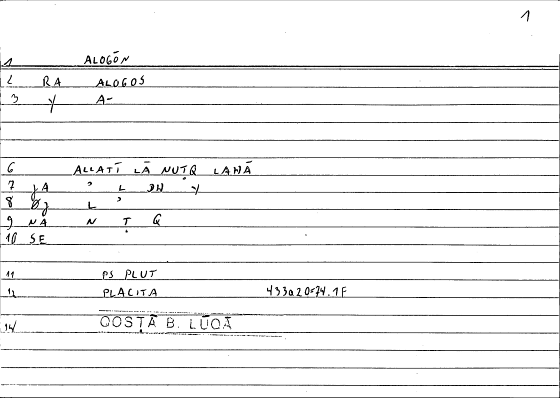 1
1 ALOGŌN
2 RA ALOGOS
3 Y A-
6 ALLATĪ LĀ NUṬQ LAHĀ
7 JA ' L DH Y
8 ØJ L '
9 NA N Ṭ Q
10 SE
11 PS PLUT
12 PLACITA 433a20=74.1F
14 QOSṬĀ B. LŪQĀ